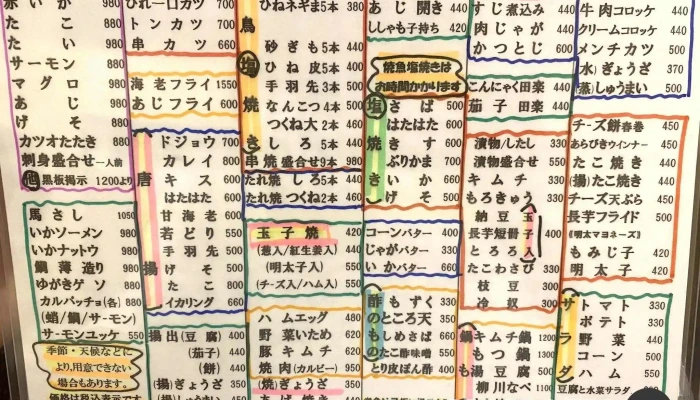 赤いか 980
たこ 880
たい 980
サーモン 880
マグロ 980
あじ 980
げそ 880
カツオたたき 880
刺身盛合せ一人前
他 黒板掲示 1200より
馬さし 1050
いかソーメン 980
いかナットウ 980
鯛薄造り 980
ゆがきゲソ 880
カルパッチョ(各) 880
(蛸/鯛/サーモン)
サーモンユッケ 550
季節・天候などに
より、用意できない
場合もあります。
価格は税込表示です
ひれ一口カツ 700
トンカツ 700
串カツ 660
海老フライ 1550
あじフライ 600
唐揚
ドジョウ 700
カレイ 800
キス 600
はたはた 600
甘海老 600
若どり 550
手羽先 500
げそ 500
たこ 800
イカリング 660
揚出(豆腐) 400
(茄子) 440
(餅) 440
(揚)ぎょうざ 350
(揚)しゅうまい
ひねネギま5本 380
鳥塩焼き
砂ぎも5本 440
ひね皮5本 400
手羽先3本 500
なんこつ4本 500
つくね大2本 460
しろ5本 440
串焼盛合せ9本 980
たれ焼しろ5本 440
たれ焼つくね2本 460
玉子焼 420
(葱入/紅生姜入) 440
(明太子入) 550
(チーズ入/ハム入) 550
ハムエッグ 480
野菜いため 620
豚キムチ 620
焼肉(カルビー) 950
(焼)ぎょうざ 350
あじ開き 440
ししゃも子持ち 420
焼魚塩焼きは
お時間かかります
塩焼き
さば 500
はたはた 600
きす 700
ぶりかま 700
いか 660
げそ 500
コーンバター 400
じゃがバター 330
いかバター 660
酢のもの
もずく 330
ところ天 350
しめさば 660
たこ酢味噌 550
とり皮ぽん酢 400
すじ煮込み 440
肉じゃが 440
かつとじ 600
こんにゃく田楽 440
茄子田楽 440
漬物/したし 330
漬物盛合せ 550
キムチ 330
もろきゅう 330
納豆玉
長芋短冊子 400
とろろ入
たこわさび 330
枝豆 300
冷奴 300
鍋
キムチ鍋 1200
もつ鍋 1300
湯豆腐 500
柳川なべ 1100
牛肉コロッケ 400
クリームコロッケ 400
メンチカツ 500
(水)ぎょうざ 370
(蒸)しゅうまい 500
チーズ餅春巻 450
あらびきウインナー 450
たこ焼き 450
(揚)たこ焼き 450
チーズ天ぷら 450
長芋フライド 500
《明太マヨネーズ》
もみじ子 420
明太子 420
サラダ
トマト 330
ポテト 330
野菜 440
コーン 500
ハム 550
豆腐と水菜サラダ